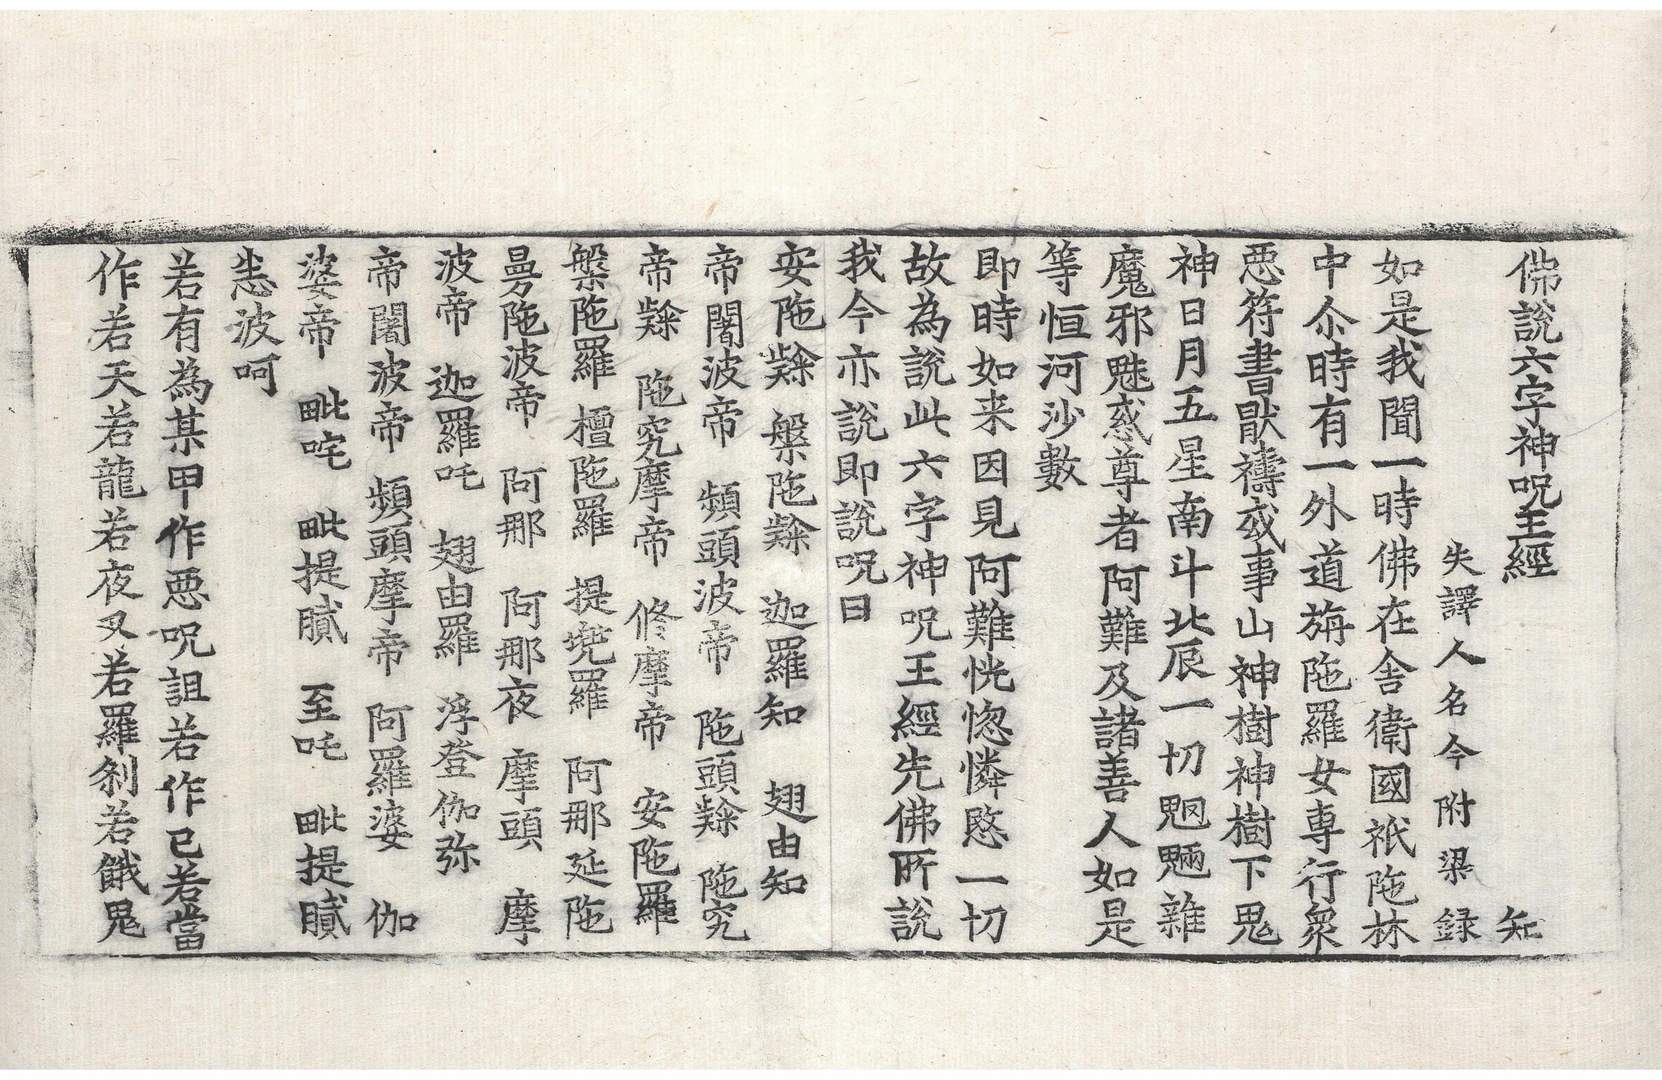 佛說六字神呪王經 知
失譯人名今附梁錄
如是我聞一時佛在舍衛國祇陁林
中尒時有一外道旃陁羅女專行衆
惡符書猒禱或事山神樹神樹下鬼
神日月五星南斗北辰一切魍魎雜
魔邪魅惑尊者阿難及諸善人如是
等恒河沙數
即時如来因見阿難恍惚憐愍一切
故為說此六字神呪王經先佛所說
我今亦說即說呪曰
安陁隸 槃陁隸 迦羅知 翅由知
帝闍波帝 頻頭波帝 陁頭隸 陁究
帝隸 陁究摩帝 修摩帝 安陁羅
槃陁羅 檀陁羅 提㙇羅 阿那延陁
曼陁波帝 阿那 阿那夜 摩頭 摩
波帝 迦羅吒 翅由羅 浮登伽弥
帝闍波帝 頻頭摩帝 阿羅婆 伽
婆帝 毗咤 毗提膩 至吒 毗提膩
恙波呵
若有為某甲作惡呪詛若作已若當
作若天若龍若夜叉若羅刹若餓鬼